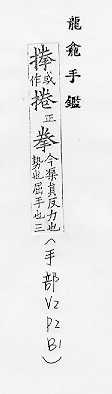 龍龕手鑑
搼或作捲正拳今渠員反力也勢也屈手也三(手部V2P2B1)